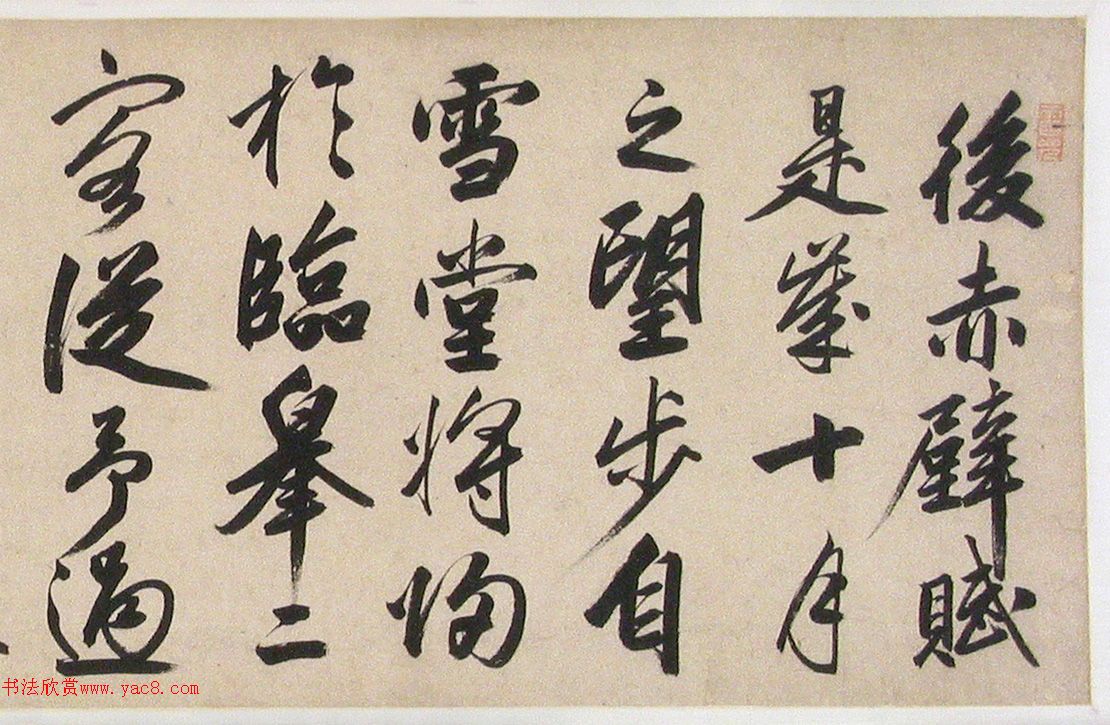 後赤壁賦
是歲十月
之望步自
雪堂將歸
於臨皋二
客從予過
书法欣赏www.yac8.com